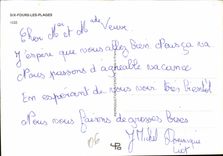 SIX-FOURS-LES-PLAGES
Cher Mr et Mme Veuve
J'espère que vous allez bien. Pour ça va
Nous passons d'agréable vacance
En espérant de vous voir très bientôt
Nous vous faisons de grosses bises
Michel Dominique